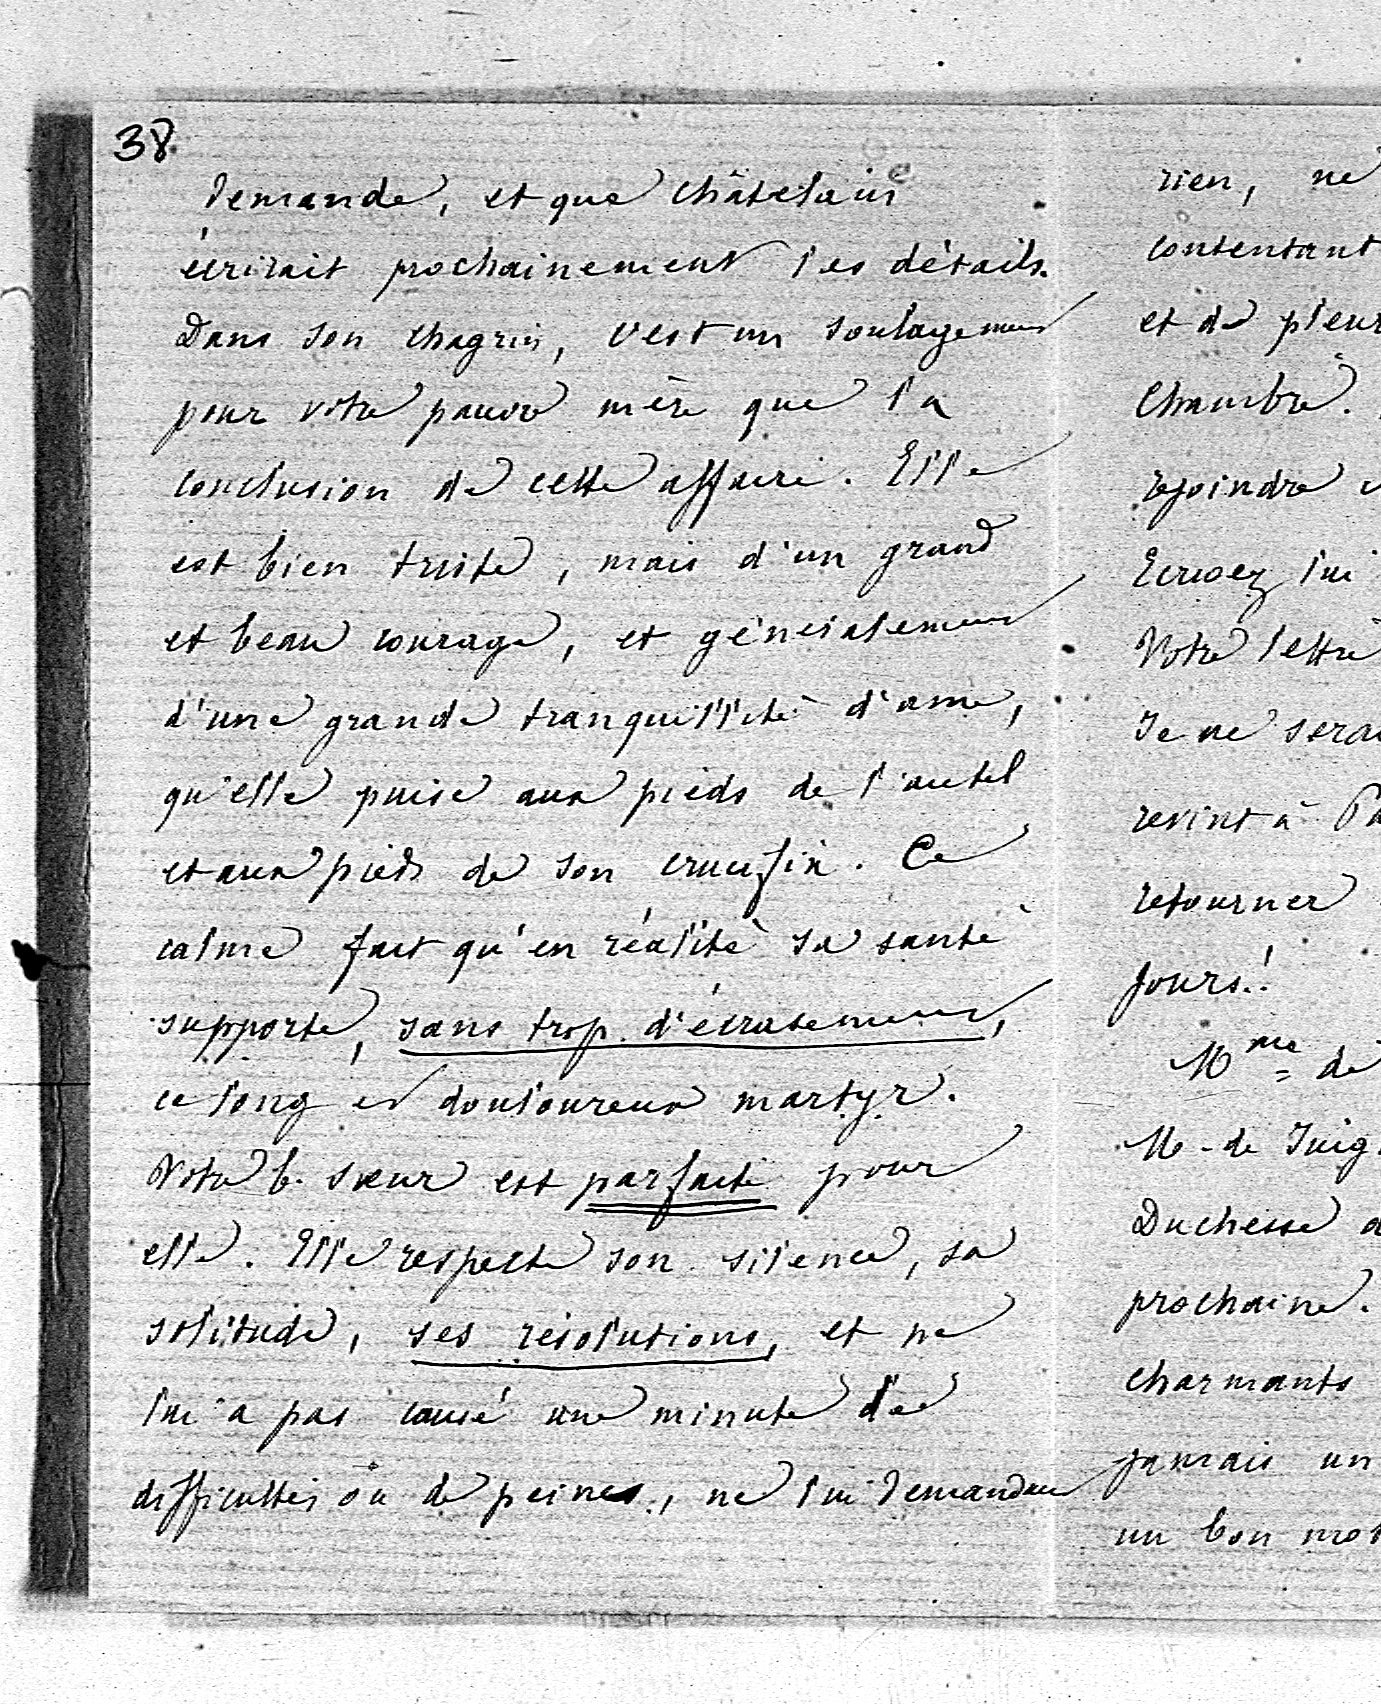 38
demande, et que Châtelain
écrirait prochainement les détails.
Dans son chagrin, c'est un soulagement
pour votre pauvre mère que la
conclusion de cette affaire. Elle
est bien triste, mais d'un grand
et beau courage, et généralement
d'une grande tranquillité d'ame,
qu'elle puise aux pieds de l'autel
et aux pieds de son crucifix. Ce
calme fait qu'en réalité sa santé
supporte, sans trop d'écrasement,
ce long et douloureux martyr.
Votre b. sœur est parfaite pour
elle. Elle respecte son silence, sa
solitude, ses résolutions, et ne
lui a pas causé une minute de
difficultés ou de peines, ne lui demandant
rien, ne
contentant
et de pleur
Chambre.
rejoindre
Ecrivez lui
Votre lettre
Je ne serai
revint à Pa
retourner
jours!
Mme de
M. de Juig
Duchesse d
prochaine.
charmants
jamais un
un bon mot